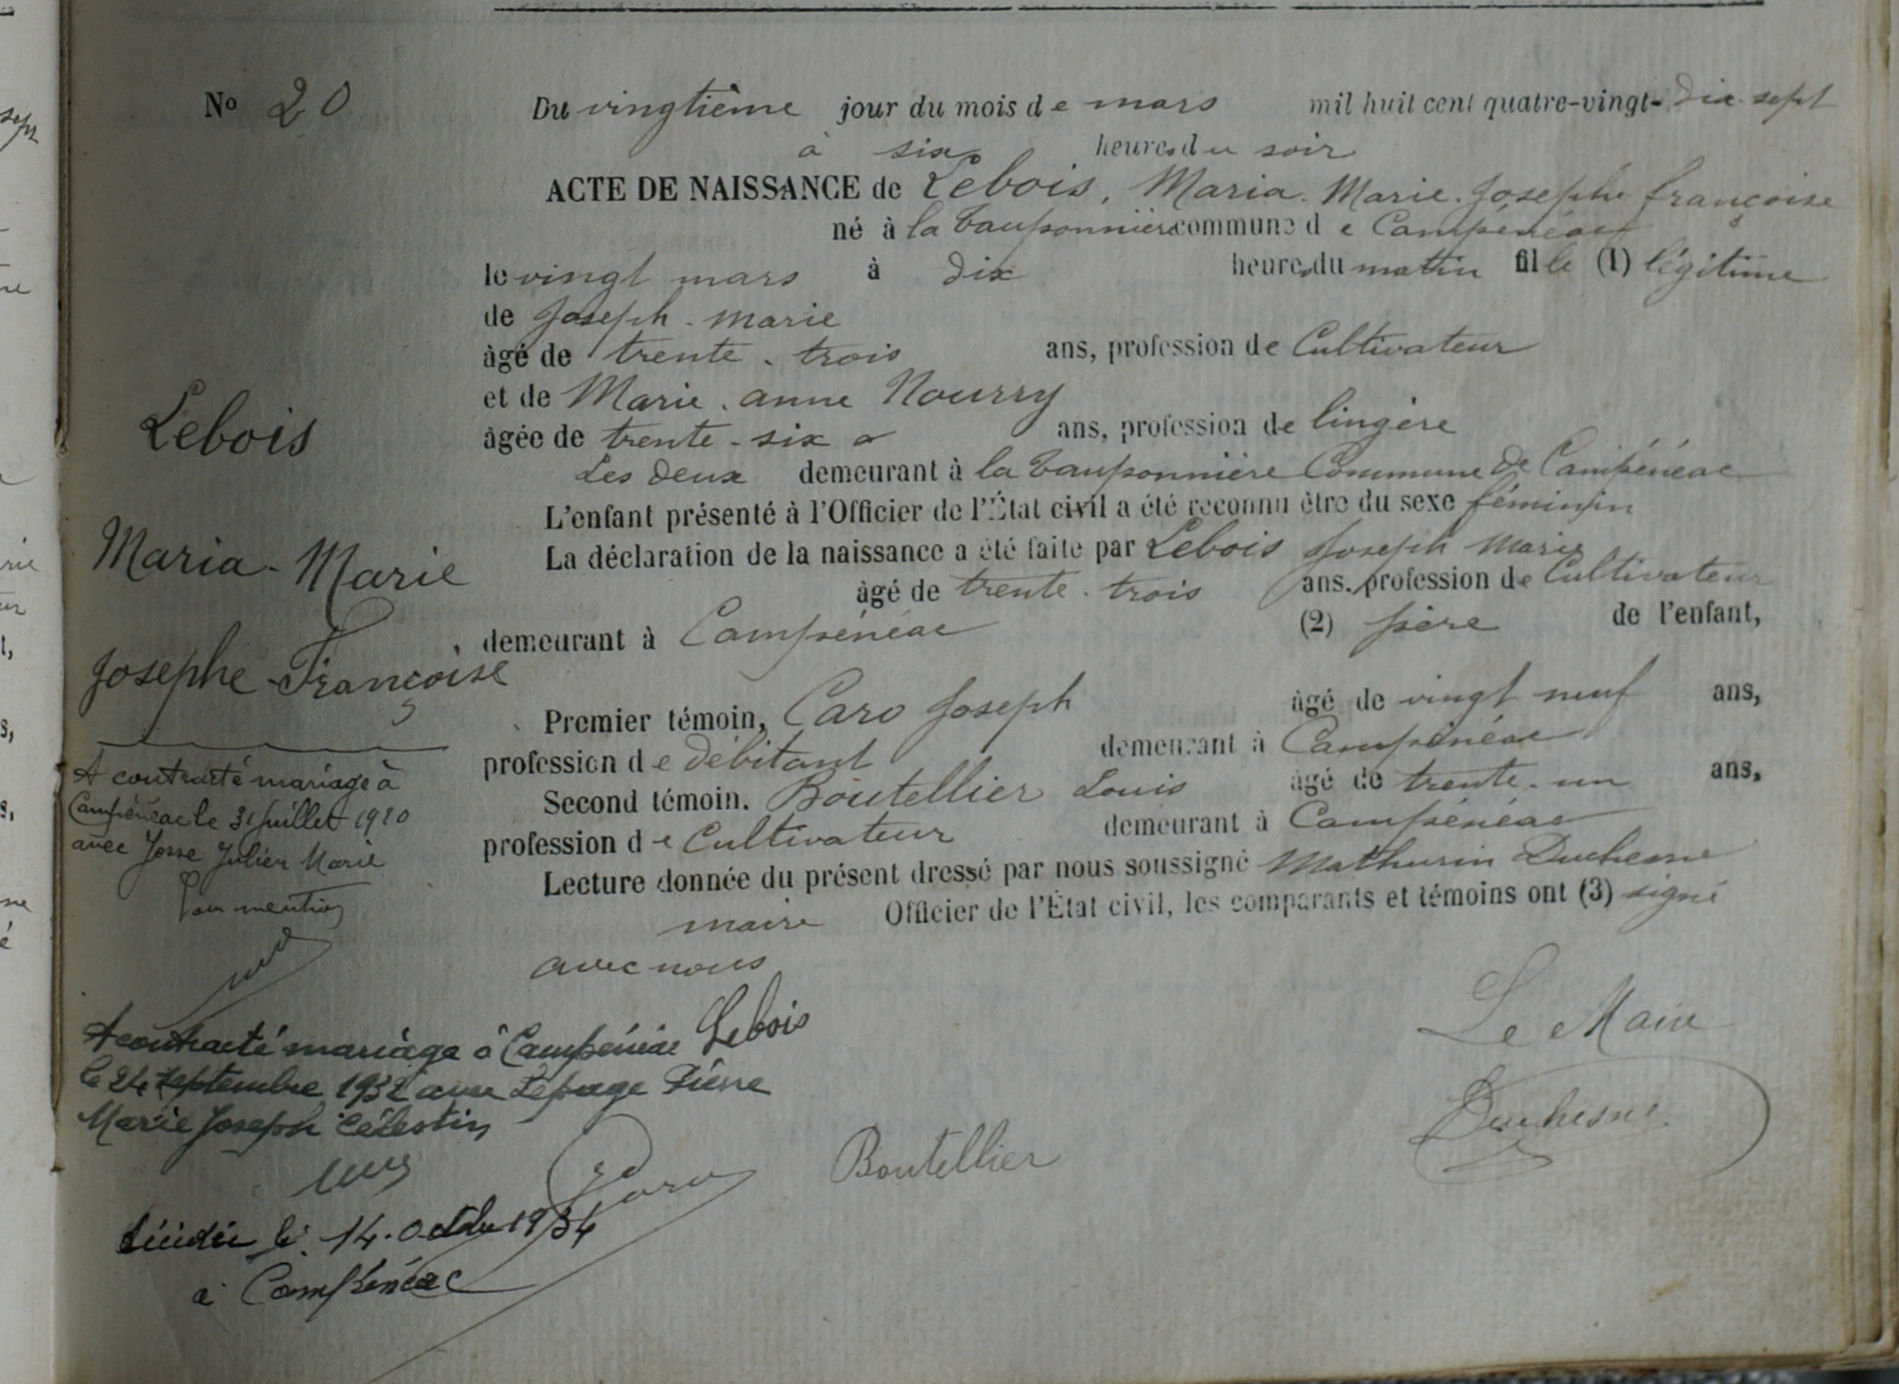 No 20
Du vingtième jour du mois de mars mil huit cent quatre-vingt-dix-sept
à six heures du soir
ACTE DE NAISSANCE de Lebois, Maria. Marie. Josephe françoise
né à la Tauponnière commune de Campénéac
le vingt mars à dix heures du matin fille (1) légitime
de Joseph-Marie
âgé de trente-trois ans, profession de Cultivateur
et de Marie-anne Nourry
âgée de trente-six ans, profession de lingère
Les deux demeurant à la Tauponnière Commune de Campénéac
L'enfant présenté à l'Officier de l'État civil a été reconnu être du sexe féminin
La déclaration de la naissance a été faite par Lebois Joseph Marie
âgé de trente-trois ans, profession de Cultivateur
demeurant à Campénéac (2) père de l'enfant,
Premier témoin, Caro Joseph âgé de vingt neuf ans,
profession de débitant demeurant à Campénéac
Second témoin. Boutellier Louis âgé de trente-un ans,
profession de Cultivateur demeurant à Campénéac
Lecture donnée du présent dressé par nous soussigné Mathurin Duchesne
maire Officier de l'État civil, les comparants et témoins ont (3) signé
avec nous
Lebois
Le Maire
Duchesne
Caro
Boutellier
Lebois
Maria-Marie
Josephe-Françoise
A contracté mariage à
Campénéac le 31 juillet 1920
avec Josse Julien Marie
Pour mention
A contracté mariage à Campénéac
le 24 septembre 1932 avec Lepage Pierre
Marie Joseph Célestin
décédée le 14. Octobre 1934
à Campénéac